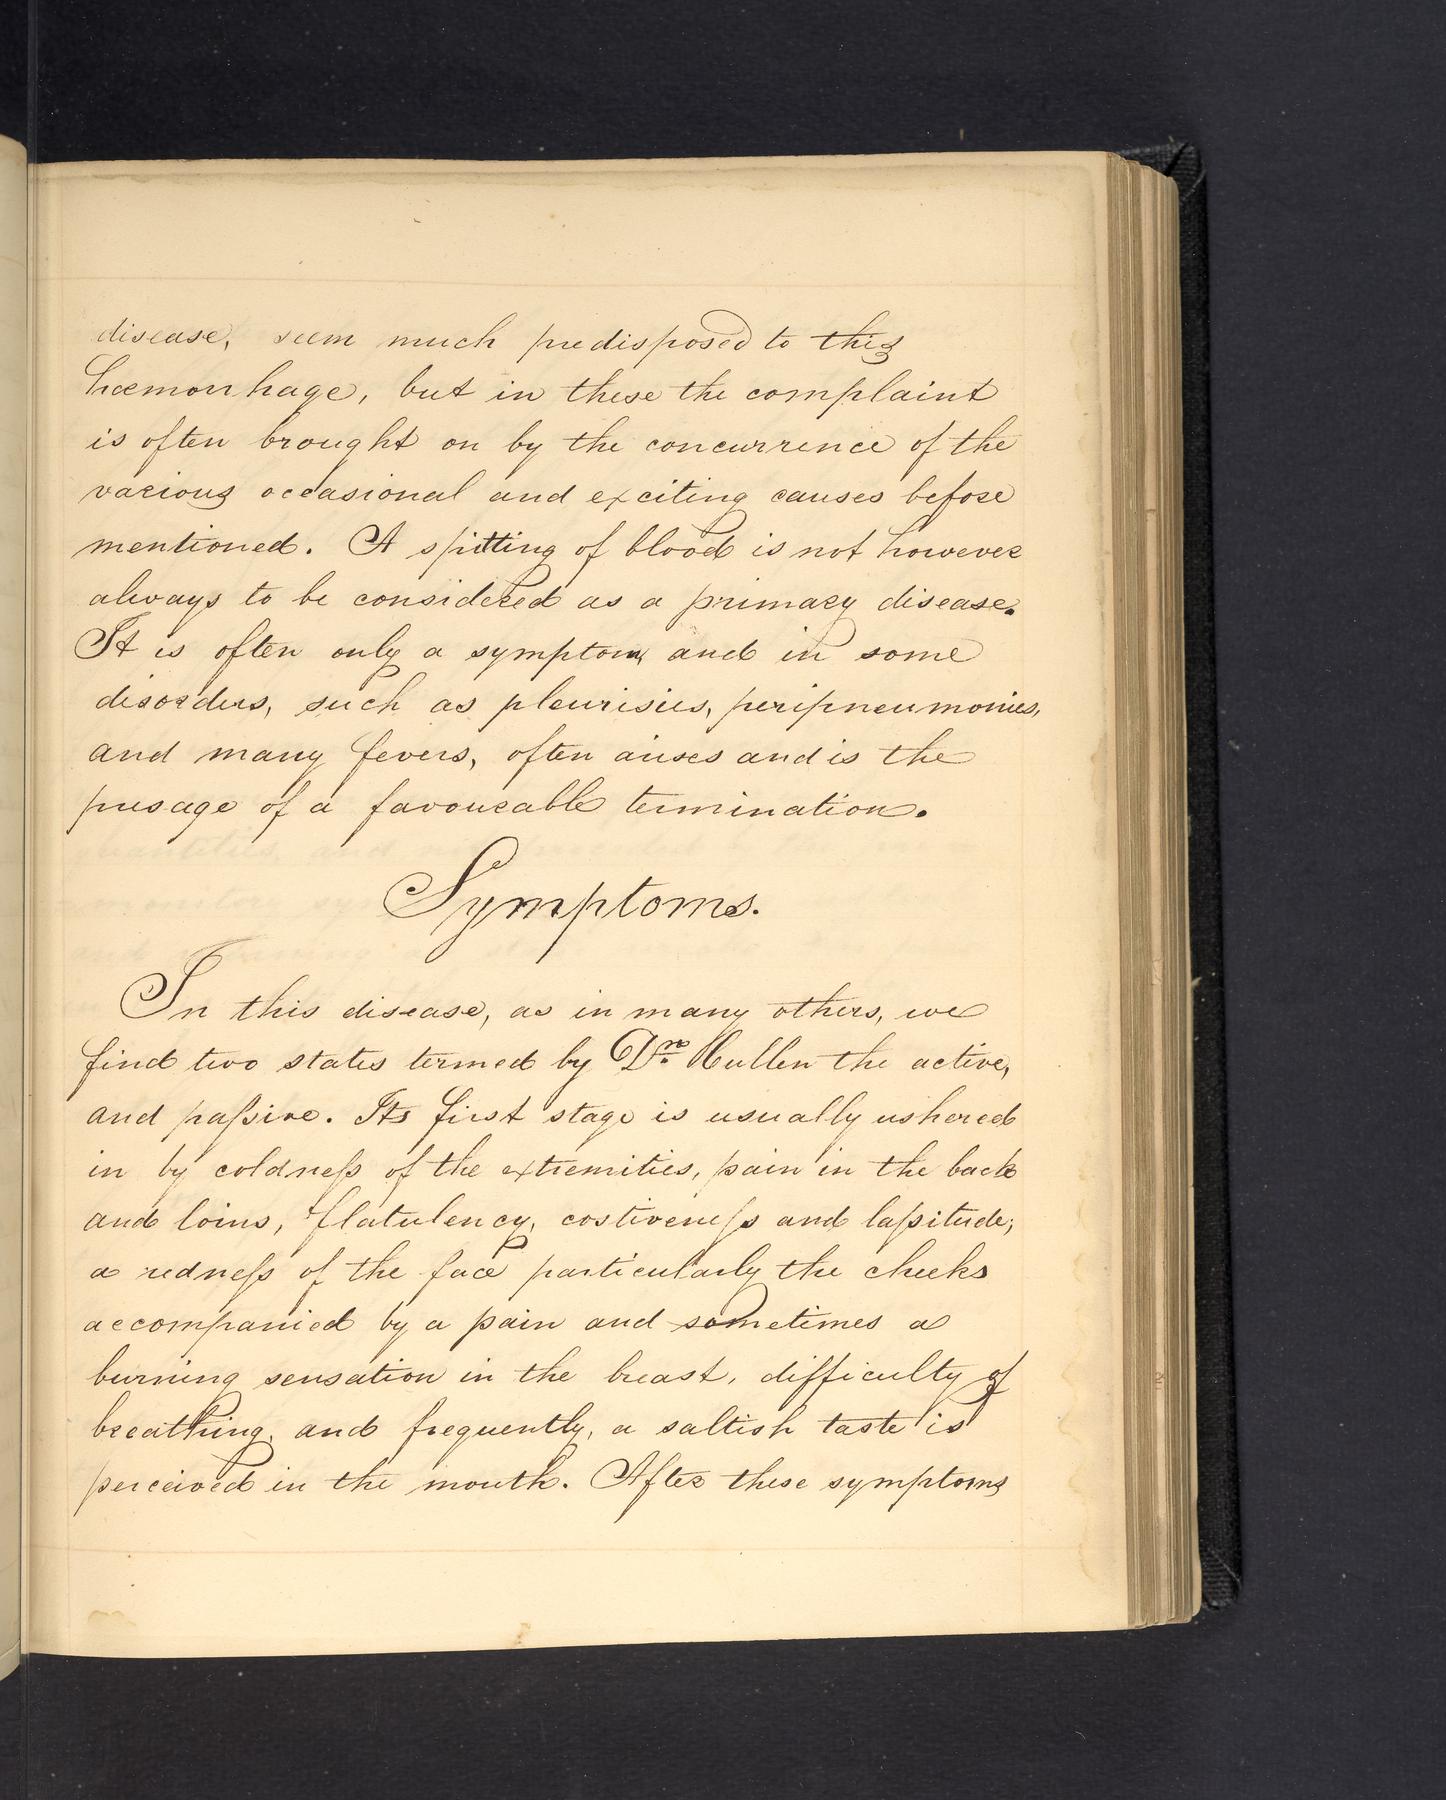 disease, seem much predisposed to this
hæmorrhage, but in these the complaint
is often brought on by the concurrence of the
various occasional and exciting causes before
mentioned. A spitting of blood is not however
always to be considered as a primary disease.
It is often only a symptom, and in some
disorders, such as pleurisies, peripneumonies,
and many fevers, often arises and is the
presage of a favourable termination.
Symptoms.
In this disease, as in many others, we
find two states termed by Dr. Cullen the active,
and paſsive. Its first stage is usually ushered
in by coldneſs of the extremities, pain in the back
and loins, flatulency, costiveneſs and laſsitude,
a redneſs of the face particularly the cheeks
accompanied by a pain and sometimes a
burning sensation in the breast, difficulty of
breathing, and frequently, a saltish taste is
perceived in the mouth. After these symptoms